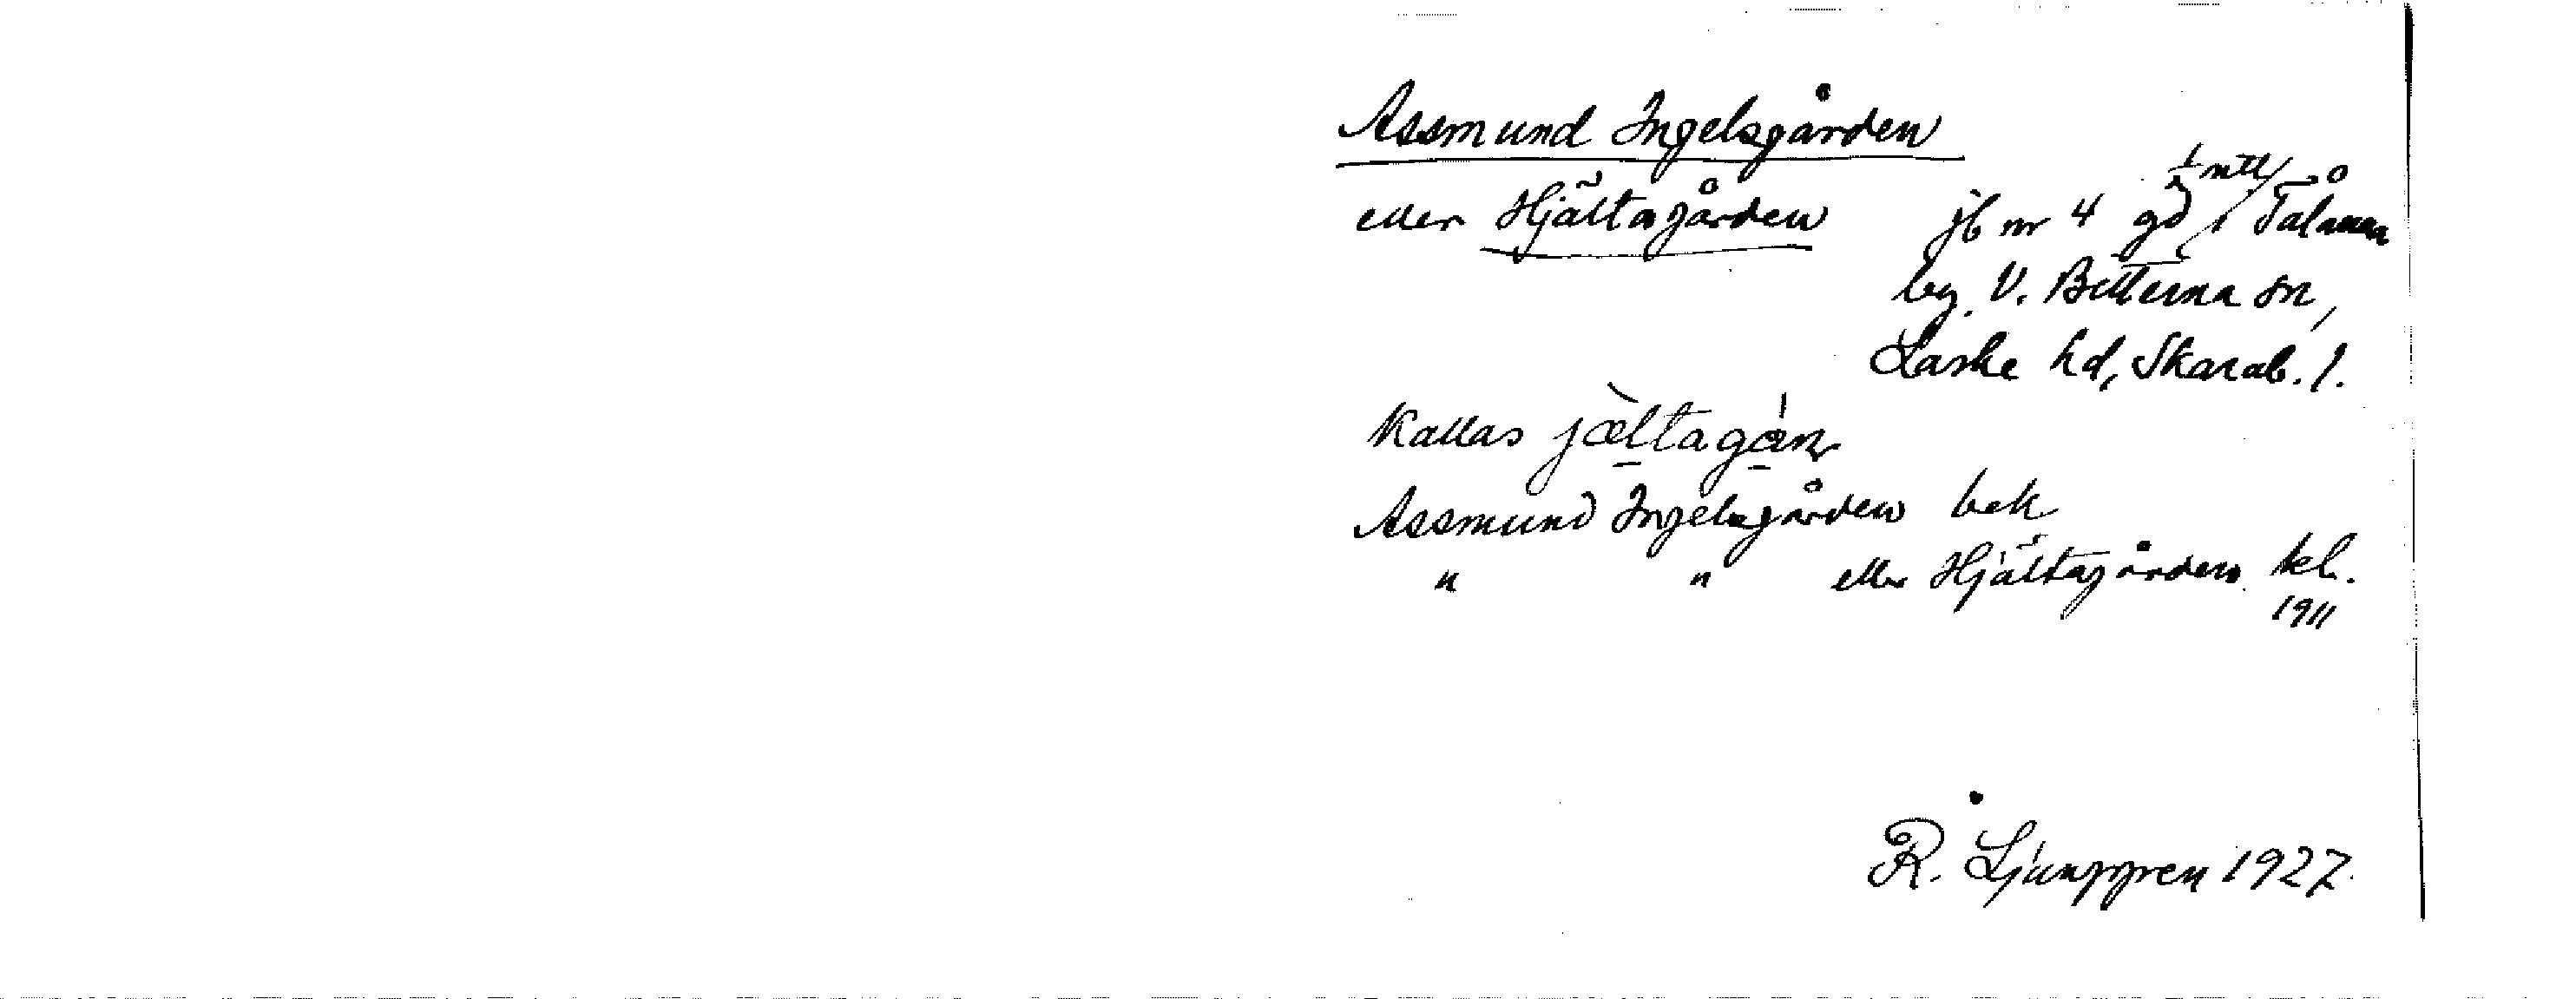 Assmund Ingelsgården
eller Hjältagården jb nr 4 gd 1/2 mtl i Tålanna
by, V. Bitterna sn,
Laske hd, Skarab. l.
Kallas jæltagàn
Assmund Ingelsgården bek
" " eller Hjältagården kl.
1911
R. Ljunggren 1927.